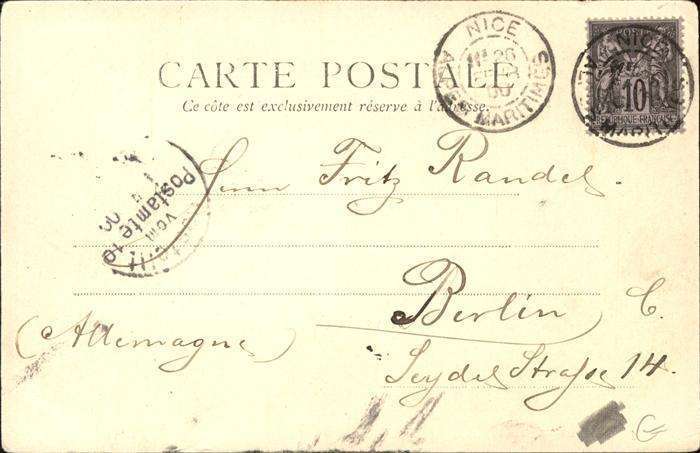 CARTE POSTALE
Ce côté est exclusivement réservé à l'adresse.
NICE
ALPES MARITIMES
POSTES
10
REPUBLIQUE FRANCAISE
NICE
Postamte 19
vom
Herrn Fritz Randel.
Berlin C.
(Allemagne)
Seydel Straße 14.